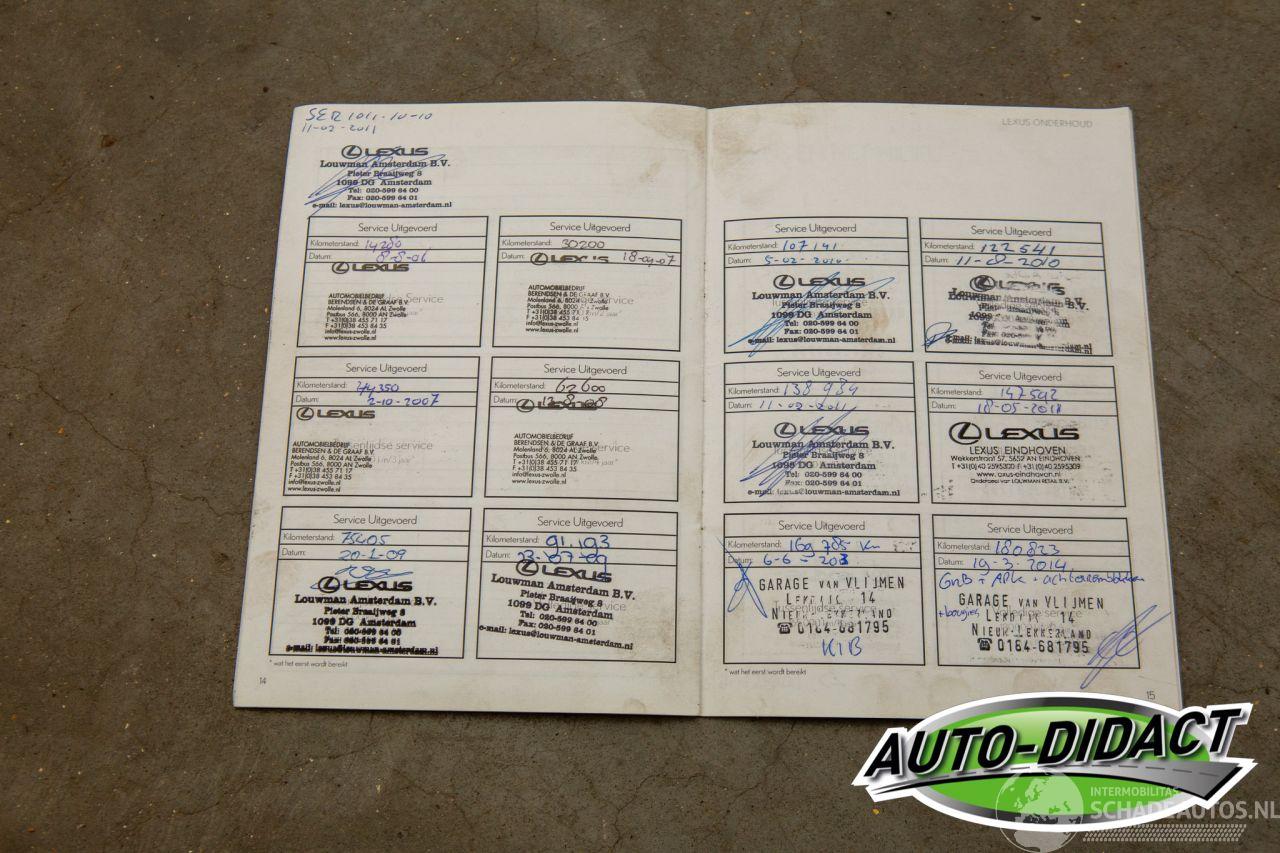 SER 1011-10-10
11-02-2011
LEXUS
Louwman Amsterdam B.V.
Pieter Braaijweg 8
1099 DG Amsterdam
Tel: 020-599 64 00
Fax: 020-599 64 01
e-mail: lexus@louwman-amsterdam.nl
Service Uitgevoerd
Kilometerstand: 14280
Datum: 8-8-06
LEXUS
AUTOMOBIELBEDRIJF
BERENDSEN & DE GRAAF B.V.
Molenland 6, 8024 AL Zwolle
Postbus 566, 8000 AN Zwolle
T +31(0)38 455 71 17
F +31(0)38 453 84 35
info@lexus-zwolle.nl
www.lexus-zwolle.nl
Service Uitgevoerd
Kilometerstand: 30200
Datum: 18-01-07
LEXUS
AUTOMOBIELBEDRIJF
BERENDSEN & DE GRAAF B.V.
Molenland 6, 8024 AL Zwolle
Postbus 566, 8000 AN Zwolle
info@lexus-zwolle.nl
www.lexus-zwolle.nl
Service Uitgevoerd
Kilometerstand: 44350
Datum: 2-10-2007
LEXUS
AUTOMOBIELBEDRIJF
BERENDSEN & DE GRAAF B.V.
Molenland 6, 8024 AL Zwolle
Postbus 566, 8000 AN Zwolle
T +31(0)38 455 71 17
F +31(0)38 453 84 35
info@lexus-zwolle.nl
www.lexus-zwolle.nl
Service Uitgevoerd
Kilometerstand: 62600
Datum:
LEXUS
AUTOMOBIELBEDRIJF
BERENDSEN & DE GRAAF B.V.
Molenland 6, 8024 AL Zwolle
Postbus 566, 8000 AN Zwolle
T +31(0)38 455 71 17
F +31(0)38 453 84 35
info@lexus-zwolle.nl
www.lexus-zwolle.nl
Service Uitgevoerd
Kilometerstand: 75405
Datum: 20-1-09
LEXUS
Louwman Amsterdam B.V.
Pieter Braaijweg 8
1099 DG Amsterdam
Tel: 020-599 64 00
Fax: 020-599 64 01
e-mail: lexus@louwman-amsterdam.nl
Service Uitgevoerd
Kilometerstand: 91.193
Datum: 23-07-09
LEXUS
Louwman Amsterdam B.V.
Pieter Braaijweg 8
1099 DG Amsterdam
Tel: 020-599 64 00
Fax: 020-599 64 01
e-mail: lexus@louwman-amsterdam.nl
* wat het eerst wordt bereikt
14
LEXUS ONDERHOUD
Service Uitgevoerd
Kilometerstand: 107141
Datum: 5-02-2010
LEXUS
Louwman Amsterdam B.V.
Pieter Braaijweg 8
1099 DG Amsterdam
Tel: 020-599 64 00
Fax: 020-599 64 01
e-mail: lexus@louwman-amsterdam.nl
Service Uitgevoerd
Kilometerstand: 122541
Datum:
LEXUS
Louwman Amsterdam B.V.
Service Uitgevoerd
Kilometerstand: 138934
Datum: 11-02-2011
LEXUS
Louwman Amsterdam B.V.
Pieter Braaijweg 8
1099 DG Amsterdam
Tel: 020-599 64 00
Fax: 020-599 64 01
e-mail: lexus@louwman-amsterdam.nl
Service Uitgevoerd
Kilometerstand: 147592
Datum: 18-05-2011
LEXUS
LEXUS EINDHOVEN
Wekkerstraat 57, 5652 AN EINDHOVEN
T +31(0)40 2595300 F +31(0)40 2595309
www.lexus-eindhoven.nl
Onderdeel van LOUWMAN RETAIL B.V.
Service Uitgevoerd
Kilometerstand: 169 785 Km
Datum: 6-6-2013
GARAGE VAN VLIJMEN
LEKDIJK 14
NIEUW-LEKKERLAND
☎ 0184-681795
KIB
Service Uitgevoerd
Kilometerstand: 180823
Datum: 19-3-2014
GnB + APK + achterremblokken
+ bougies
GARAGE VAN VLIJMEN
LEKDIJK 14
NIEUW-LEKKERLAND
☎ 0184-681795
* wat het eerst wordt bereikt
15
AUTO-DIDACT
INTERMOBILITAS
SCHADEAUTOS.NL